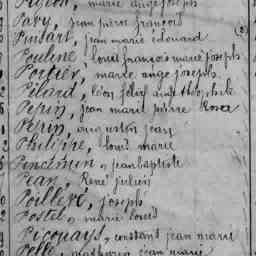 Pigeon, marie ange joseph
Pavy, jean pierre françois
Pinsart, jean marie édouard
Pouline, louis françois marie joseph (2)
Portier, marie ange joseph
Pilard, léon
Perin, jean marie pierre
Perin, augustin jean
Philippe, louis marie
Pincemin, jean baptiste
Pian, René julien
Poilleve, joseph
Postel, marie louis
Picquays, constant jean marie
Pelle, mathurin jean marie